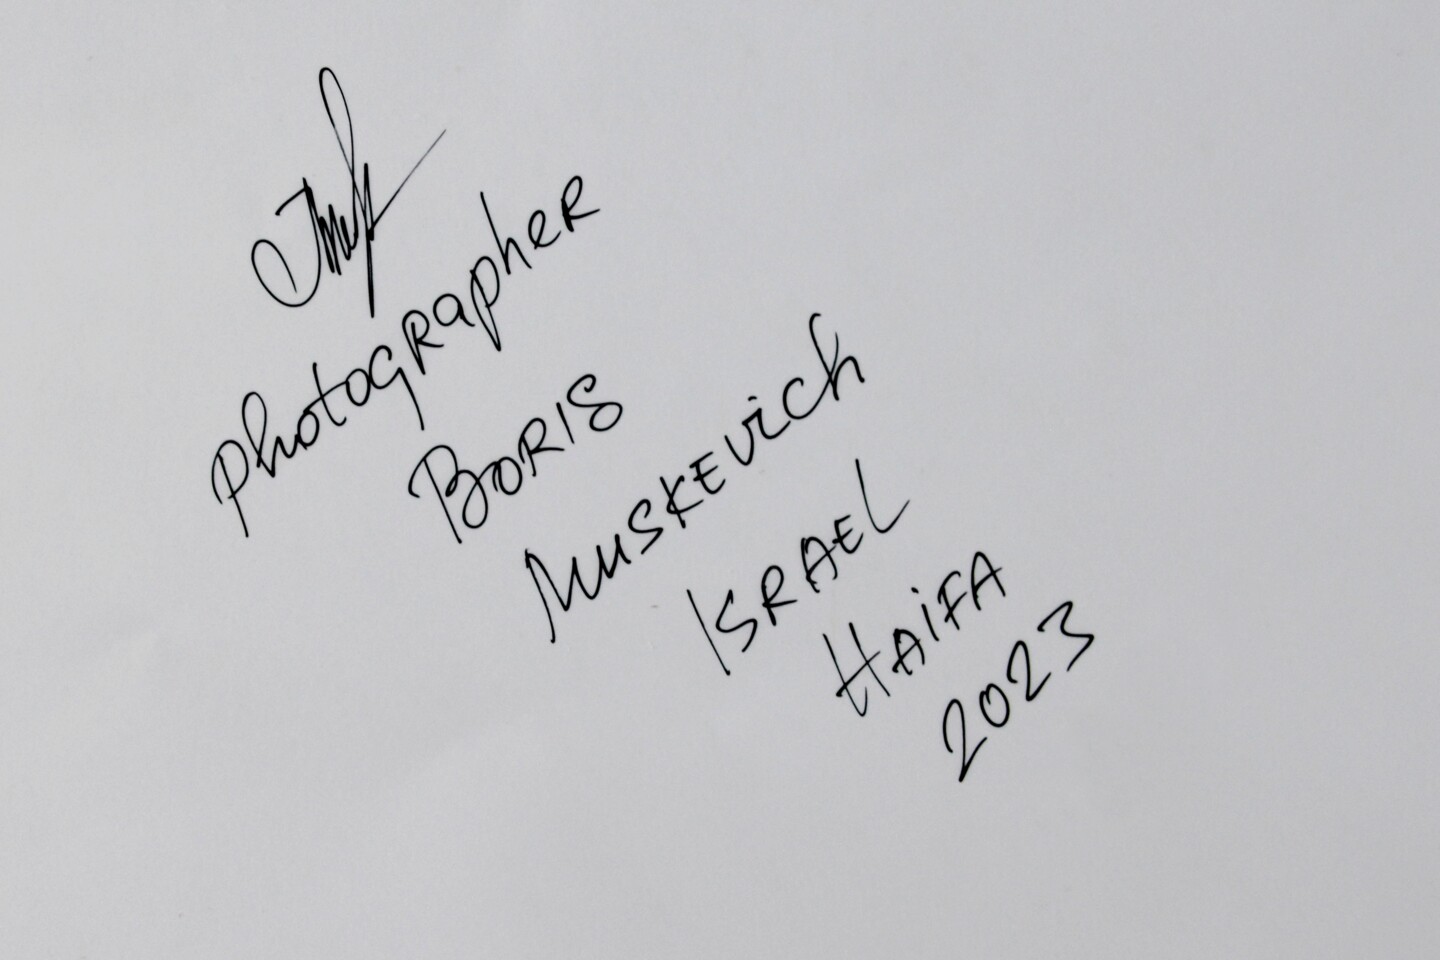 photographer
Boris
Muskevich
Israel
Haifa
2023